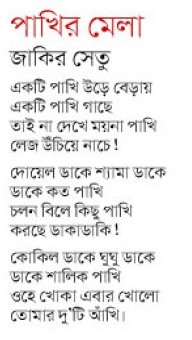 পাখির মেলা
জাকির সেতু
একটি পাখি উড়ে বেড়ায়
একটি পাখি গাছে
তাই না দেখে ময়না পাখি
লেজ উঁচিয়ে নাচে!
দোয়েল ডাকে শ্যামা ডাকে
ডাকে কত পাখি
চলন বিলে কিছু পাখি
করছে ডাকাডাকি!
কোকিল ডাকে ঘুঘু ডাকে
ডাকে শালিক পাখি
ওহে খোকা এবার খোলো
তোমার দু'টি আঁখি।